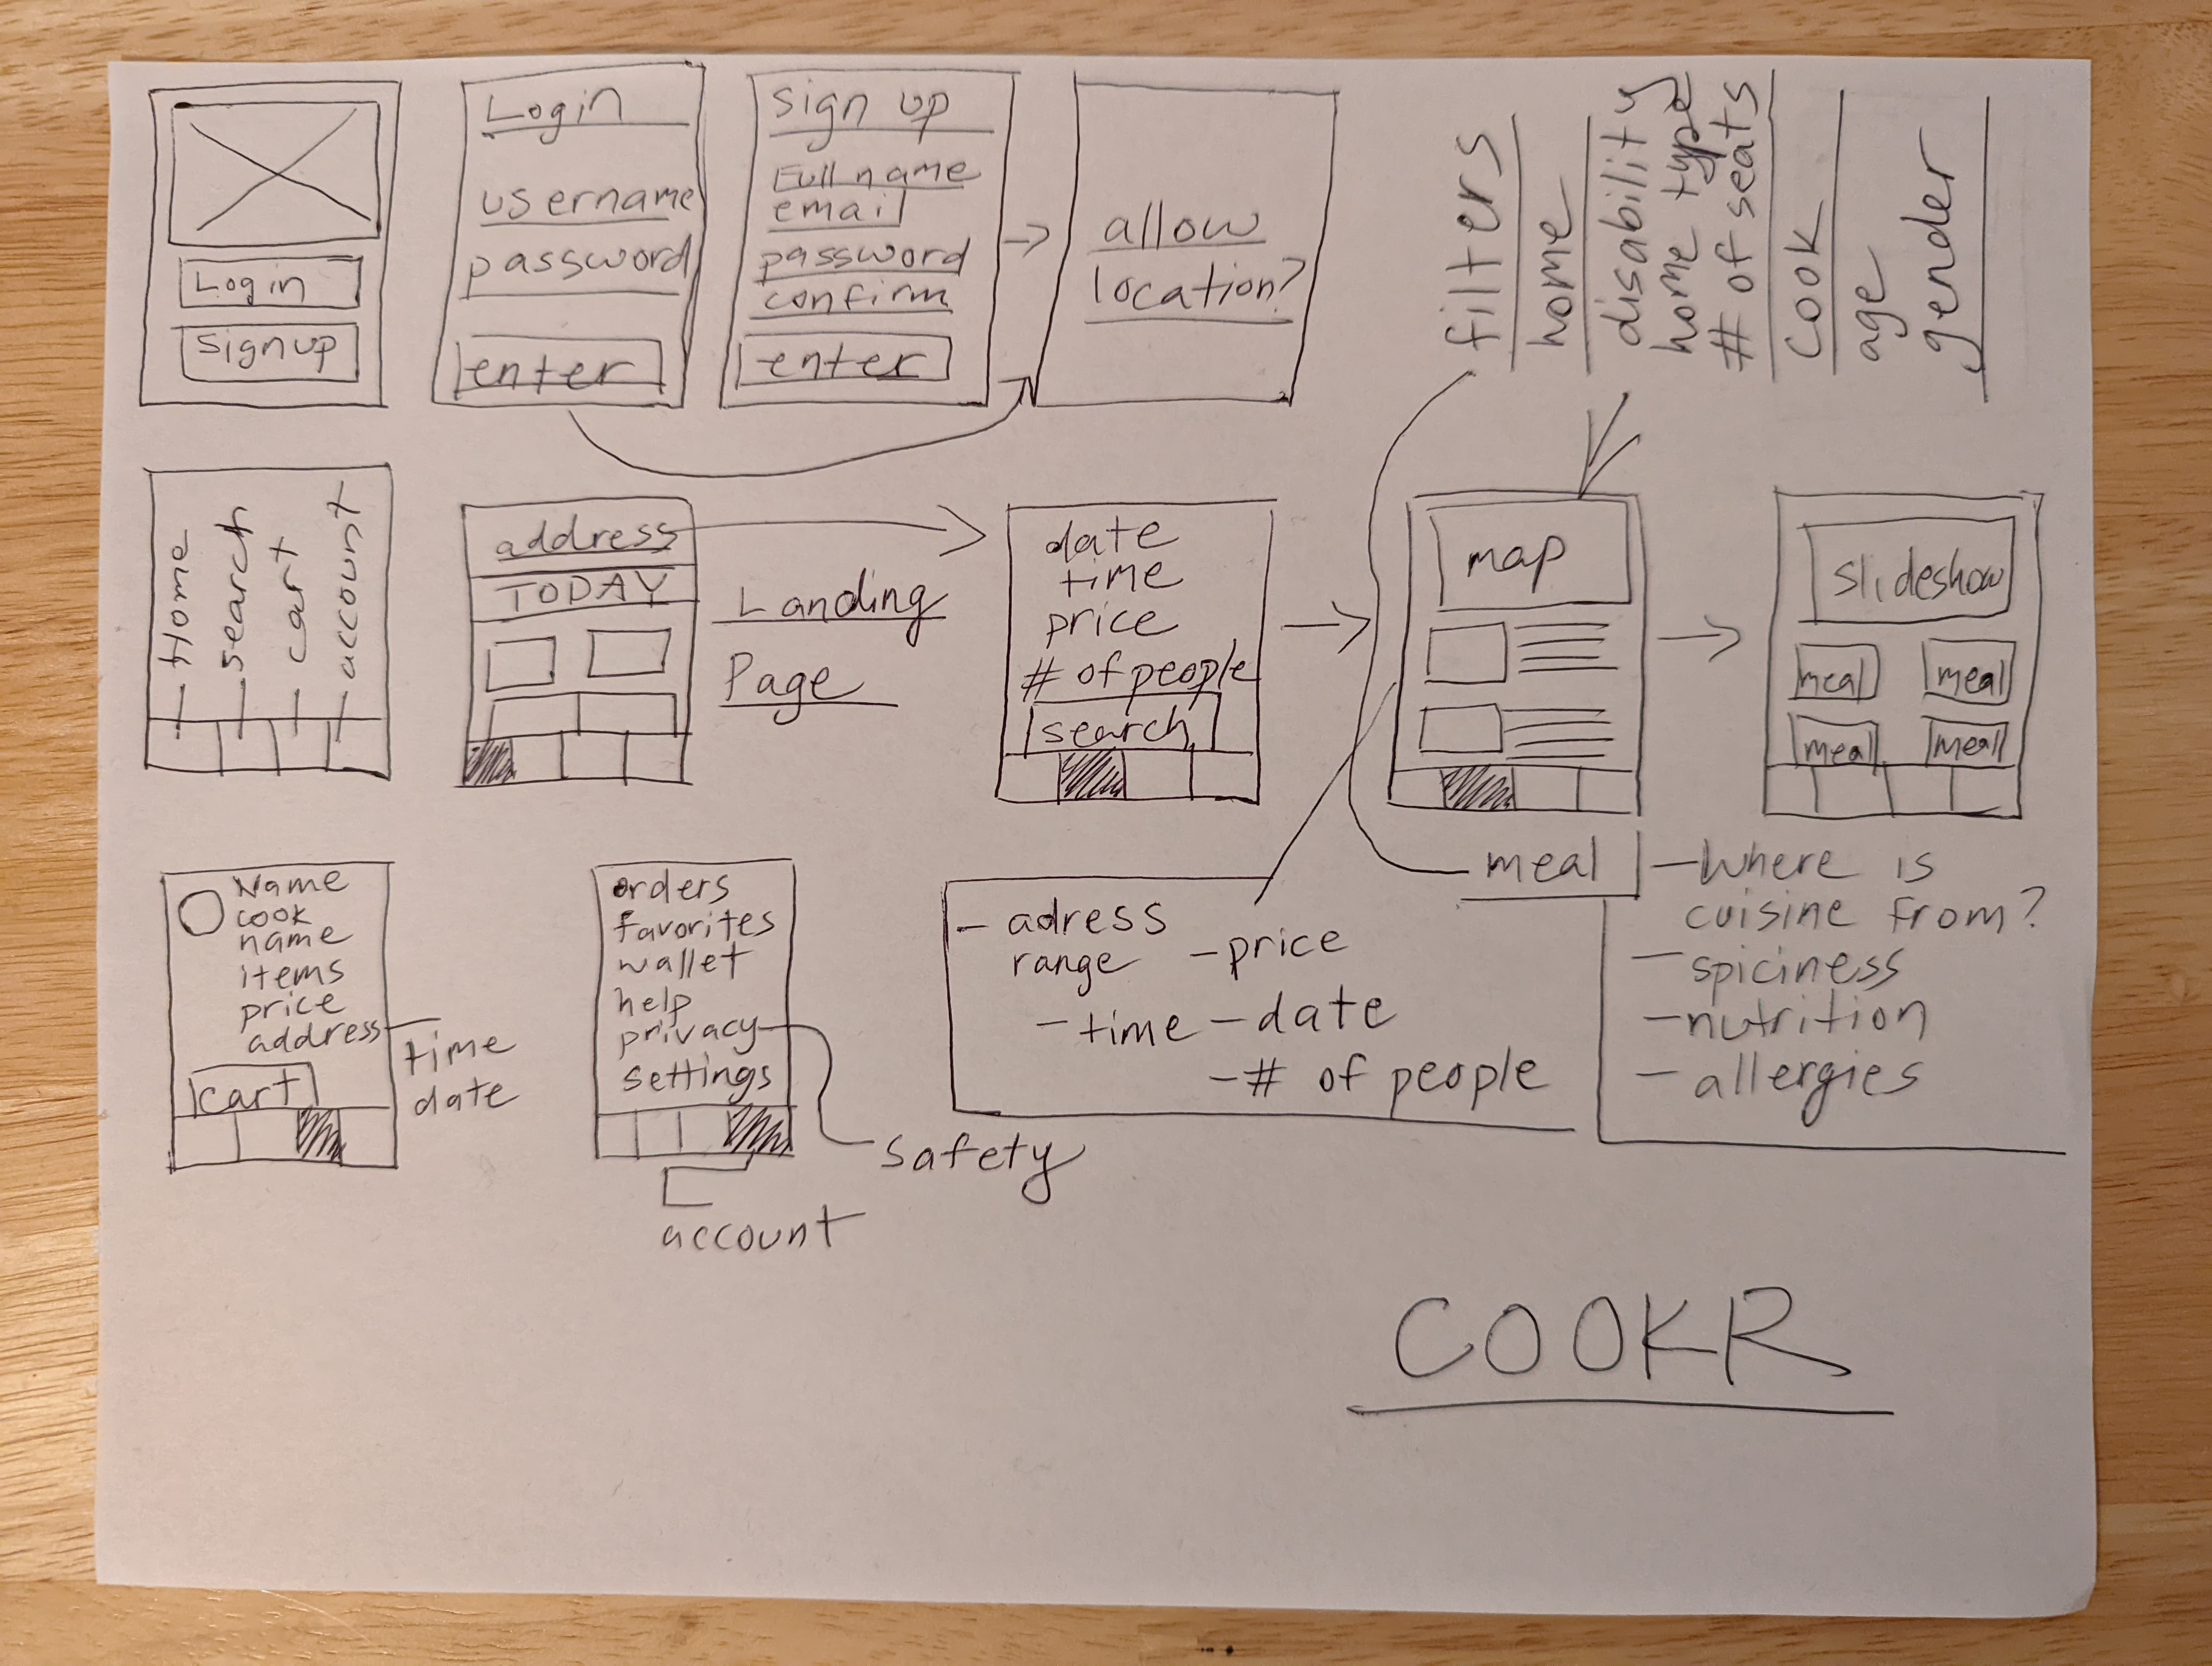 Login
Signup
Login
username
password
enter
Sign up
Full name
email
password
confirm
enter
allow
location?
filters
home
disability
home type
# of seats
Cook
age
gender
Home
search
cart
account
address
TODAY
Landing
Page
date
time
price
# of people
search
map
slideshow
meal meal
meal meal
Name
cook
name
items
price
address
time
date
cart
orders
favorites
wallet
help
privacy
settings
safety
account
- adress
range
- price
- time
- date
- # of people
meal
- Where is
cuisine from?
- spiciness
- nutrition
- allergies
COOKR